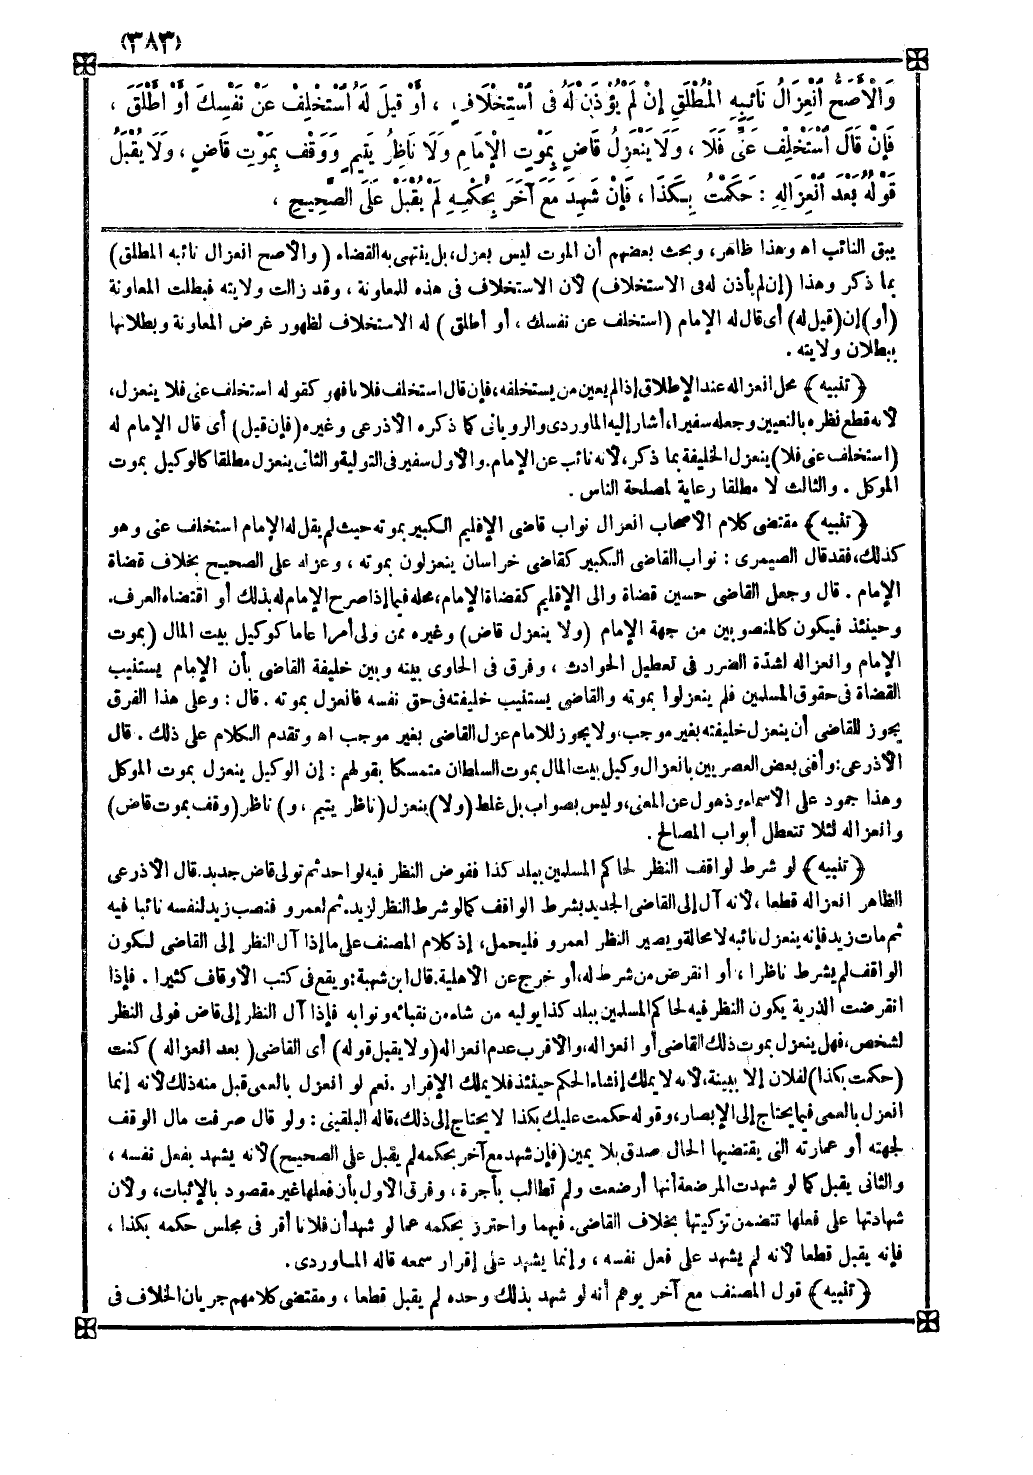 (٣٨٣)
وَالْأَصَحُّ انْعِزَالُ نَائِبِهِ الْمُطْلَقِ إِنْ لَمْ يُؤْذَنْ لَهُ فِى اسْتِخْلَافٍ ، أَوْ قِيلَ لَهُ اسْتَخْلِفْ عَنْ نَفْسِكَ أَوْ أَطْلَقَ ،
فَإِنْ قَالَ اسْتَخْلِفْ عَنِّى فَلَا ، وَلَا يَنْعَزِلُ قَاضٍ بِمَوْتِ الْإِمَامِ وَلَا نَاظِرُ يَتِيمٍ وَوَقْفٍ بِمَوْتِ قَاضٍ ، وَلَا يُقْبَلُ
قَوْلُهُ بَعْدَ انْعِزَالِهِ : حَكَمْتُ بِكَذَا ، فَإِنْ شَهِدَ مَعَ آخَرَ بِحُكْمِهِ لَمْ يُقْبَلْ عَلَى الصَّحِيحِ ،
يبق النائب اه وهذا ظاهر، وبحث بعضهم أن الموت ليس بعزل، بل ينتهى به القضاء (والأصح انعزال نائبه المطلق)
بما ذكر وهذا (إن لم يأذن له فى الاستخلاف) لأن الاستخلاف فى هذه للمعاونة ، وقد زالت ولايته فبطلت المعاونة
(أو) إن (قيل له) أى قال له الإمام (استخلف عن نفسك ، أو أطلق) له الاستخلاف لظهور غرض المعاونة وبطلانها
ببطلان ولايته .
﴿تنبيه﴾ محل انعزاله عند الإطلاق إذا لم يعين من يستخلفه، فإن قال استخلف فلانا فهو كقوله استخلف عنى فلا ينعزل،
لأنه قطع نظره بالتعيين وجعله سفيرا، أشار إليه الماوردى والرويانى كما ذكره الأذرعى وغيره (فإن قيل) أى قال الإمام له
(استخلف عنى فلا) ينعزل الخليفة بما ذكر، لأنه نائب عن الإمام. والأول سفير فى التولية والثانى ينعزل مطلقا كالوكيل بموت
الموكل . والثالث لا مطلقا رعاية لمصلحة الناس .
﴿تنبيه﴾ مقتضى كلام الأصحاب انعزال نواب قاضى الإقليم الكبير بموته حيث لم يقل له الإمام استخلف عنى وهو
كذلك، فقد قال الصيمرى : نواب القاضى الكبير كقاضى خراسان ينعزلون بموته ، وعزله على الصحيح بخلاف قضاة
الإمام . قال وجعل القاضى حسين قضاة والى الإقليم كقضاة الإمام، محله فيما إذا صرح الإمام له بذلك أو اقتضاه العرف.
وحينئذ فيكون كالمنصوبين من جهة الإمام (ولا ينعزل قاض) وغيره ممن ولى أمرا عاما كوكيل بيت المال (بموت
الإمام وانعزاله لشدة الضرر فى تعطيل الحوادث ، وفرق فى الحاوى بينه وبين خليفة القاضى بأن الإمام يستنيب
القضاة فى حقوق المسلمين فلم ينعزلوا بموته والقاضى يستنيب خليفته فى حق نفسه فانعزل بموته . قال : وعلى هذا الفرق
يجوز للقاضى أن ينعزل خليفته بغير موجب، ولا يجوز للامام عزل القاضى بغير موجب اه وتقدم الكلام على ذلك . قال
الأذرعى : وأفتى بعض العصريين بانعزال وكيل بيت المال بموت السلطان متمسكا بقولهم : إن الوكيل ينعزل بموت الموكل
وهذا جمود على الأسماء وذهول عن المعنى، وليس بصواب بل غلط (ولا) ينعزل (ناظر يتيم ، و) ناظر (وقف بموت قاض)
وانعزاله لئلا تتعطل أبواب المصالح .
﴿تنبيه﴾ لو شرط لواقف النظر لحاكم المسلمين ببلد كذا ففوض النظر فيه لواحد ثم تولى قاض جديد. قال الأذرعى
الظاهر انعزاله قطعا ، لأنه آل إلى القاضى الجديد بشرط الواقف كما لو شرط النظر لزيد. ثم لعمرو فنصب زيد لنفسه نائبا فيه
ثم مات زيد فإنه ينعزل نائبه لا محالة ويصير النظر لعمرو فليحمل، إذ كلام المصنف على ما إذا آل النظر إلى القاضى لكون
الواقف لم يشرط ناظرا ، أو انقرض من شرط له، أو خرج عن الأهلية. قال ابن شهبة : ويقع فى كتب الأوقاف كثيرا . فإذا
انقرضت الذرية يكون النظر فيه لحاكم المسلمين ببلد كذا يوليه من شاء من نقبائه ونوابه فإذا آل النظر إلى قاض فولى النظر
لشخص، فهل ينعزل بموت ذلك القاضى أو انعزاله، والأقرب عدم انعزاله (ولا يقبل قوله) أى القاضى (بعد انعزاله) كنت
(حكمت بكذا) لفلان إلا ببينة، لأنه لا يملك إنشاء الحكم حينئذ فلا يملك الإقرار . نعم لو انعزل بالعمى قبل منه ذلك لأنه إنما
انعزل بالعمى فيما يحتاج إلى الإبصار، وقوله حكمت عليك بكذا لا يحتاج إلى ذلك، قاله البلقينى : ولو قال صرفت مال الوقف
لجهته أو عمارته التى يقتضيها الحال صدق بلا يمين (فإن شهد مع آخر بحكمه لم يقبل على الصحيح) لأنه يشهد بفعل نفسه ،
والثانى يقبل كما لو شهدت المرضعة أنها أرضعت ولم تطالب بأجرة ، وفرق الأول بأن فعلها غير مقصود بالإثبات، ولأن
شهادتها على فعلها تتضمن تزكيتها بخلاف القاضى. فيهما واحترز بحكمه عما لو شهد أن فلانا أقر فى مجلس حكمه بكذا ،
فإنه يقبل قطعا لأنه لم يشهد على فعل نفسه ، وإنما يشهد على إقرار سمعه قاله الماوردى .
﴿تنبيه﴾ قول المصنف مع آخر يوهم أنه لو شهد بذلك وحده لم يقبل قطعا ، ومقتضى كلامهم جريان الخلاف فى